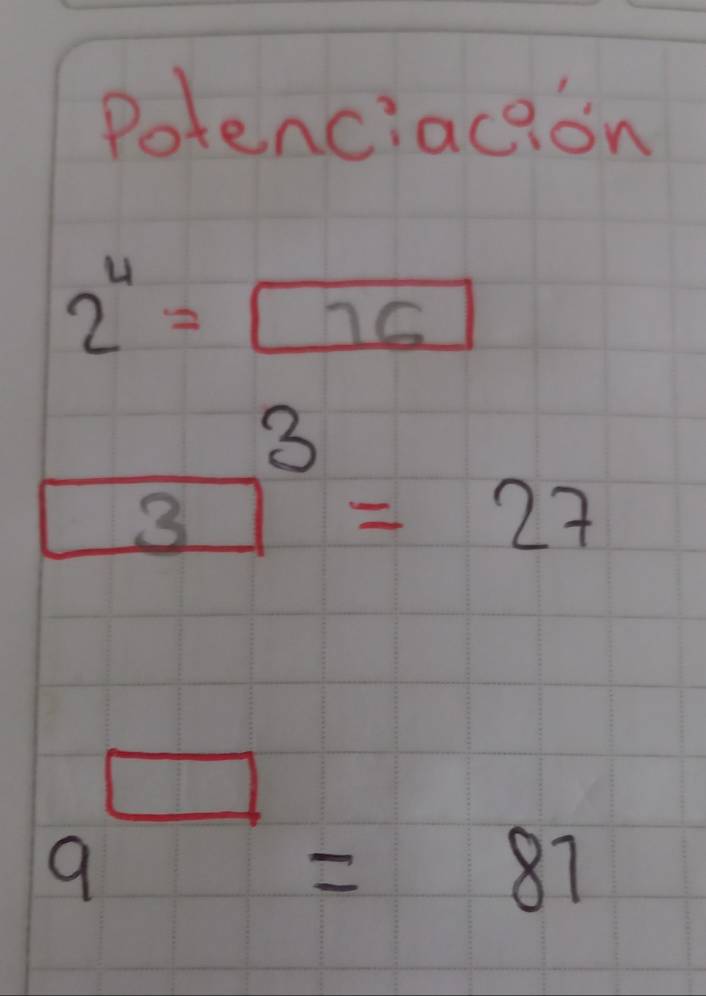 Potenciación
2⁴ = 16
3³ = 27
9 = 81